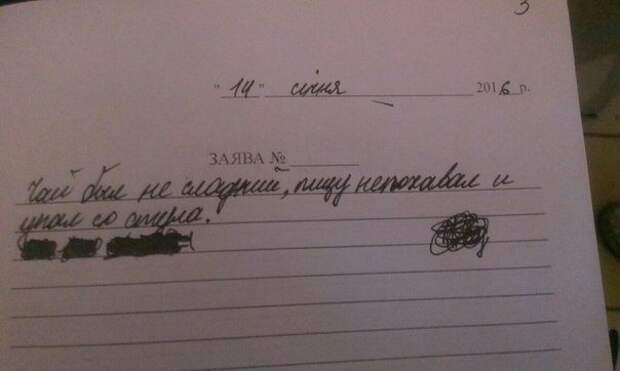 3
"14" січня 2016 р.
ЗАЯВА №
Чай был не сладкий, пищу непожавал и
упал со стула.